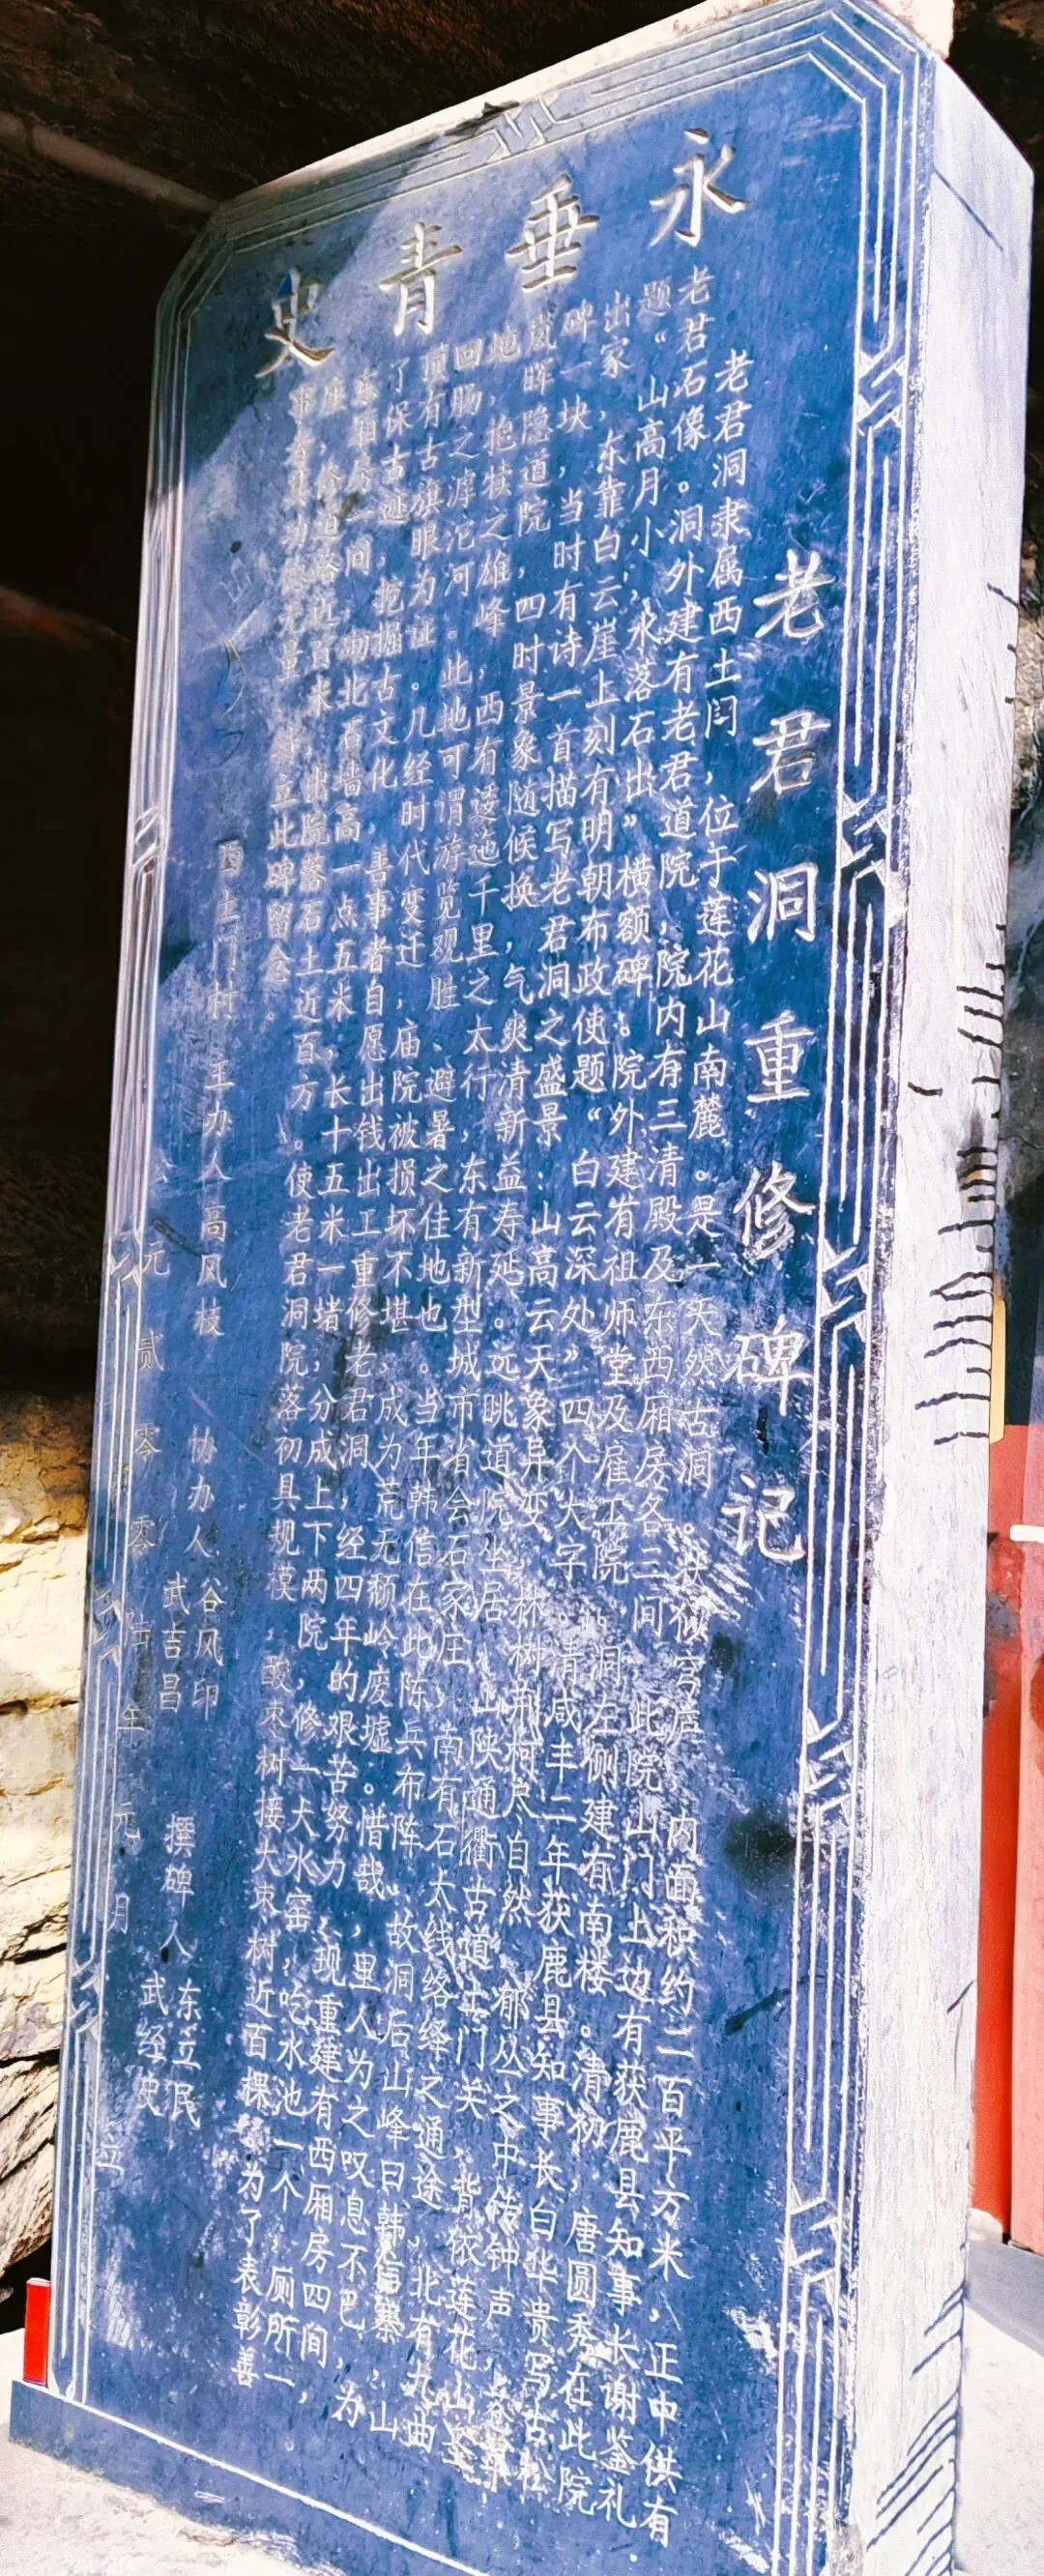 永垂青史
老君洞重修碑记
老君洞隶属西土门，位于莲花山南麓。是一天然古洞。状似穹庐，内面积约二百平方米，正中供有
老君石像。洞外建有老君道院，院内有三清殿及东西厢房各三间，此院山门上边有获鹿县知事长谢鉴礼
题“山高月小，水落石出”横额碑。院外建有祖师堂及雇工院。洞左侧建有南楼。清初，唐圆秀在此院
出家，东靠白云崖上刻有明朝布政使题“白云深处”四个大字。清咸丰二年获鹿县知事长白华贵写古松
碑一块，当时有诗一首描写老君洞之盛景：山高云天象异变，林树荆柯尽自然，郁丛之中传钟声，
岚晖隐道院，四时景象随候换，气爽清新益寿延。远眺道院坐居山陕通衢古道土门关，背依莲花山
地，抱犊之雄峰，西有逶迤千里之太行，东有新型城市省会石家庄，南有石太线络绎之通途，北有九曲
回肠之滹沱河。此地可谓游览观胜、避暑之佳地也。当年韩信在此陈兵布阵，故洞后山峰曰韩信寨，山
顶有古旗眼为证。几经时代变迁，庙院被损坏不堪，成为荒无颓岭废墟。惜哉，里人为之叹息不已，为
了保古迹，挖掘古文化，善事者自愿出钱出工重修老君洞，经四年的艰苦努力，现重建有西厢房四间，
厢房一间，北石墙高一点五米，长十五米一堵，分成上下两院，修一大水窑，吃水池一个，厕所一
出院落石土近百方。使老君洞院落初具规模，酸枣树接大枣树近百棵，为了表彰善
立此碑留念。
西土门村 主办人 高风枝 协办人 谷风印 武吉昌 撰碑人 东立民 武经史
元贰零零 年元月 立